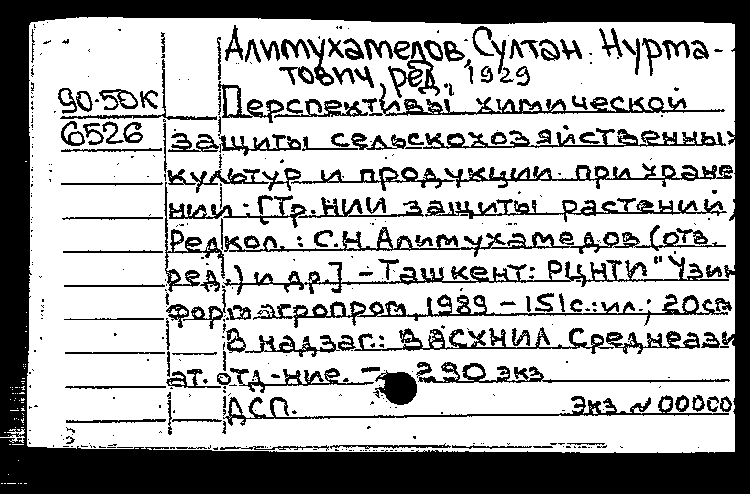 Алимухамедов, Султан Нурма-
тович, ред., 1929
90-50К Перспективы химической
6526 защиты сельскохозяйственных
культур и продукции при хране
нии: [Тр. НИИ защиты растений;
Редкол.: С.Н. Алимухамедов (отв.
ред.) и др.] - Ташкент: РЦНТИ "Узин
формагропром, 1989 - 151с.: ил.; 20см
В надзаг.: ВАСХНИЛ Среднеази
ат. отд-ние. - 290 экз
ДСП. Экз. N 00000